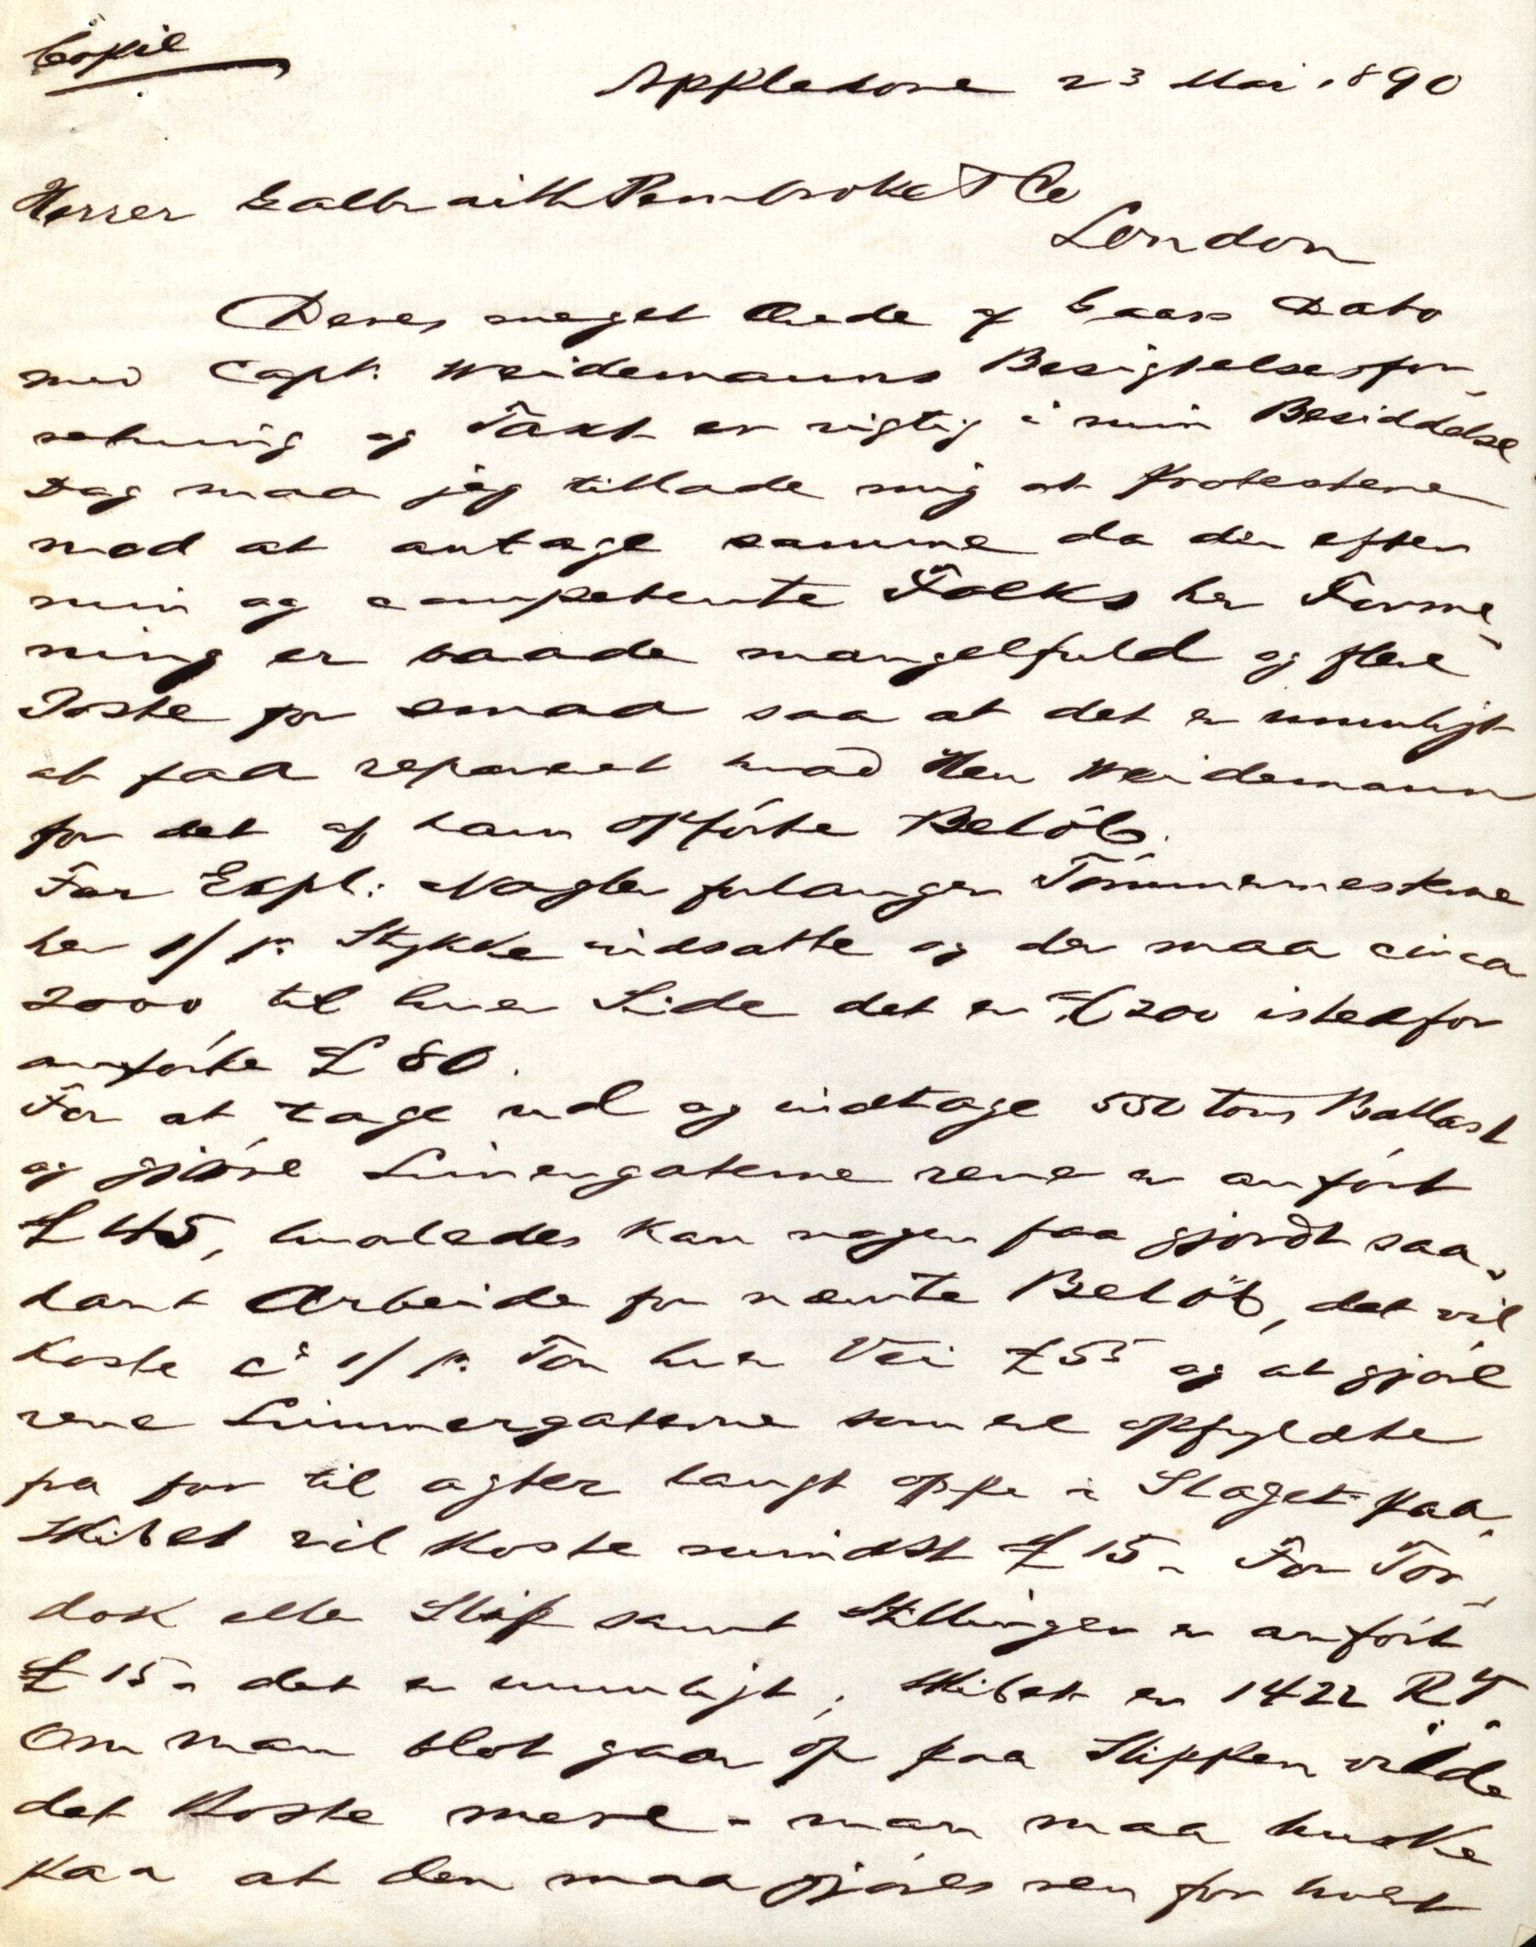 Copie
Appledore 23 Mai 1890
Herrer Galbraith Pembroke & Co
London
Deres meget ærede af Gaars Dato
med Capt. Weidemanns Besigtelsesfor-
retning og Taxt er rigtig i min Besiddelse
Dog maa jeg tillade mig at Protestere
mod at antage samme da den efter
min og competente Folks her Forme-
ning er baade mangelfuld og flere
Poste for smaa saa at det er umuligt
at faa repareret hvad Herr Weidemann
for det af ham opførte Beløb.
For Expl: Nagler forlanger Tømmermestrene
her 1/ pr. Stykke indsatte og der maa circa
2000 til hver Side det er £ 200 istedfor
anførte £ 80.
For at tage ud og indtage 550 tons Ballast
og gjøre Limergaterne rene er anført
£ 45, hvorledes kan nogen faa gjordt saa-
dant Arbeide for nævnte Beløb, det vil
koste ca 1/ pr. Ton hver Vei £ 55 og at gjøre
rene Limmergaterne som ere opfyldte
fra for til agter langt oppe i Slaget paa
Skibet vil koste mindst £ 15 - For Tør-
dok eller Slip samt Stillinger er anført
£ 15 - det er umuligt, Skibet er 1422 R.T.
Om man blot gaar op paa Slippen vilde
det koste mere - man maa huske
paa at den maa gjøres ren for hvert